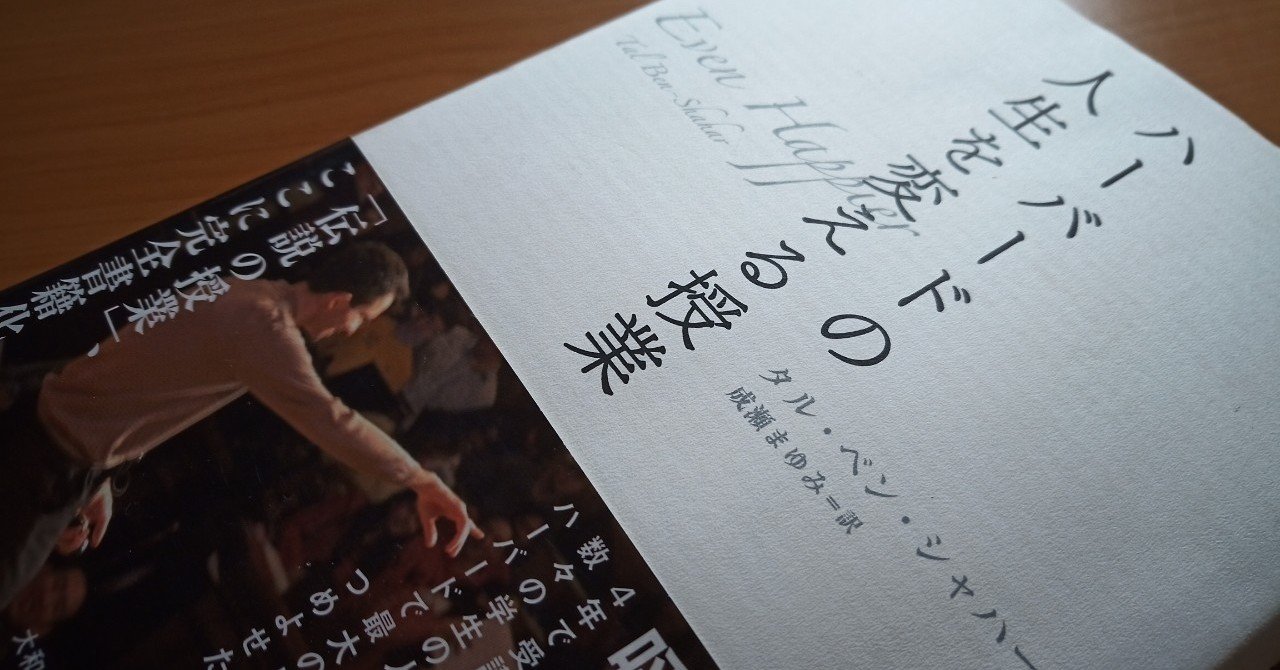 ハーバードの
人生を変える授業
Even Happier
Tal Ben-Shahar
タル・ベン・シャハー
成瀬まゆみ=訳
「伝説の授業」、
ここに完全書籍化
4年で受講
数々の学生の人
ハーバードで最大の
つめよせた
大和